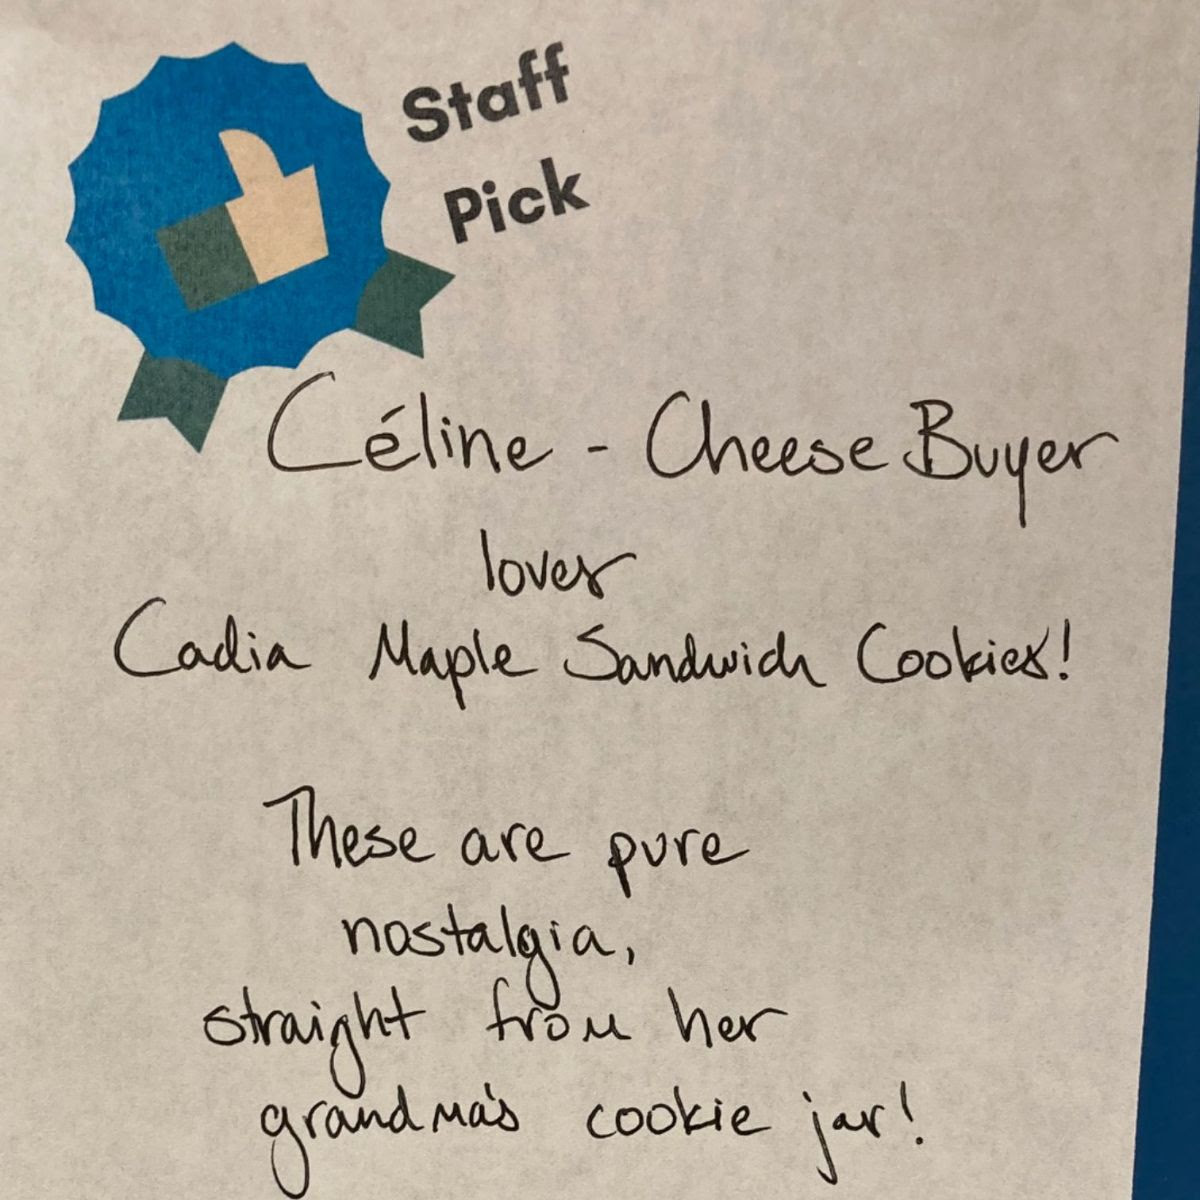 Staff
Pick
Céline - Cheese Buyer
loves
Cadia Maple Sandwich Cookies!
These are pure
nostalgia,
straight from her
grandma's cookie jar!